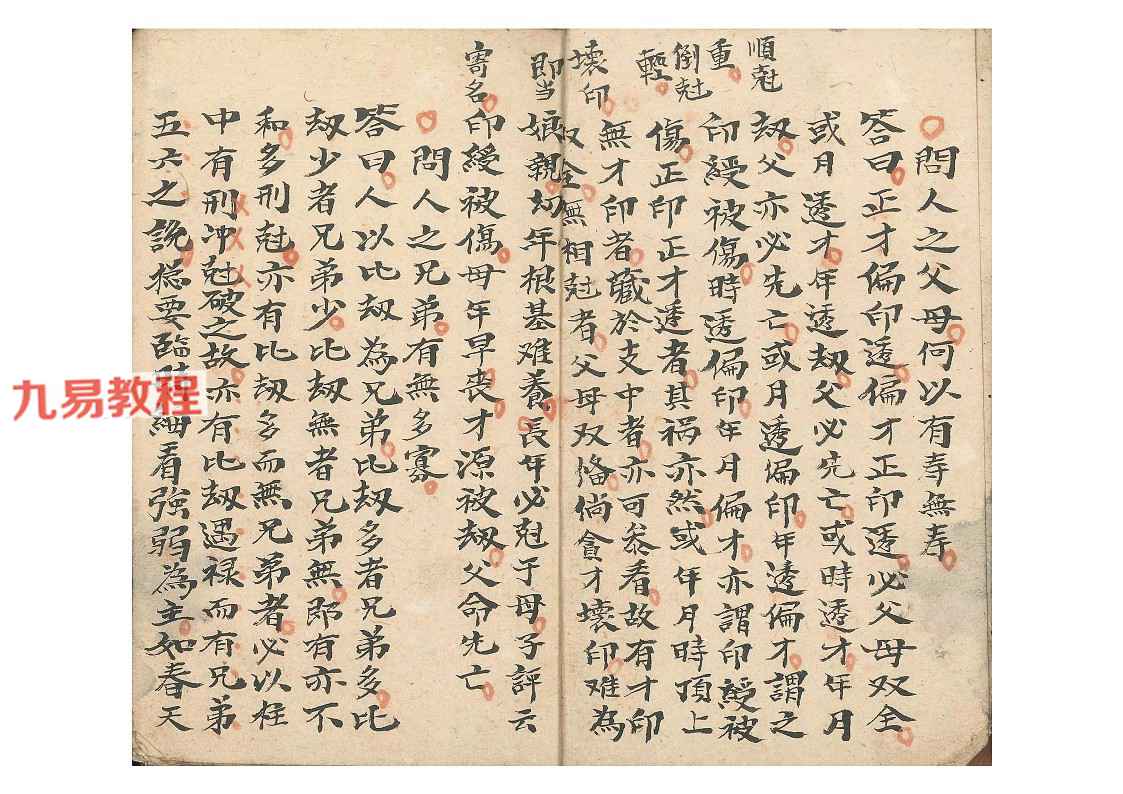 順尅
重
倒尅
輕
壞印
即当
寄名
問人之父母何以有寿無寿
答曰正才偏印透偏才正印透必父母双全
或月透才年透劫父必先亡或時透才年月
劫父亦必先亡或月透偏印年透偏才謂之
印綬被傷時透偏印年月偏才亦謂印綬被
傷正印正才透者其祸亦然或年月時頂上
無才印者藏於支中者亦可叅看故有才印
双全無相尅者父母双俻倘貪才壞印难為
娘親幼年根基难養長年必尅子母子評云
印綬被傷母年早丧才源被劫父命先亡
問人之兄弟有無多寡
答曰人以比劫為兄弟比劫多者兄弟多比
劫少者兄弟少比劫無者兄弟無即有亦不
和多刑尅亦有比劫多而無兄弟者必以柱
中有刑冲尅破之故亦有比劫遇禄而有兄弟
五六之說搃要臨細看強弱為主如春天
九易教程